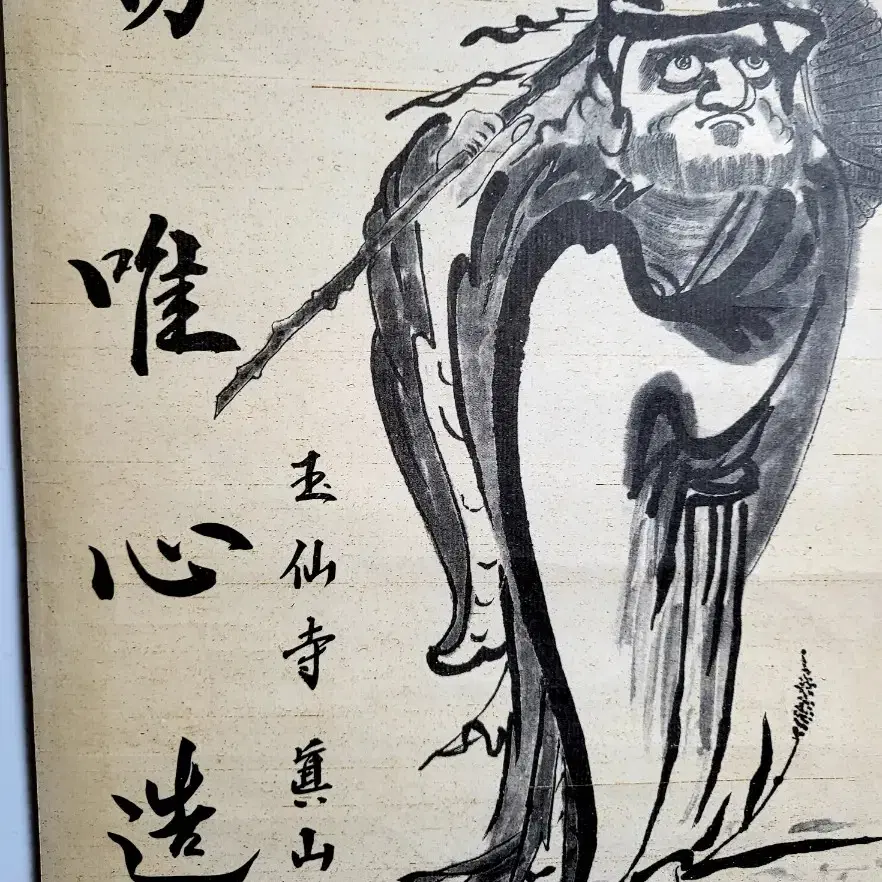 切唯心造
玉仙寺 眞山